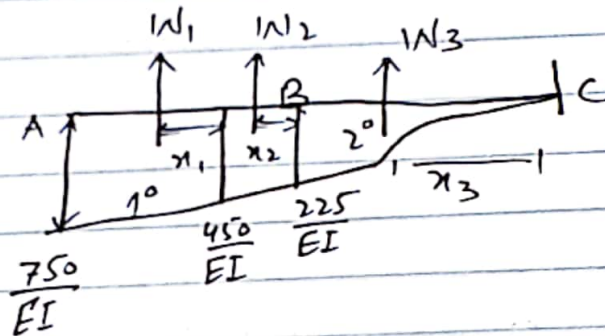 IN₁ IN₂ IN₃
A B C
x₁ x₂ 2° x₃
1°
750/EI 450/EI 225/EI